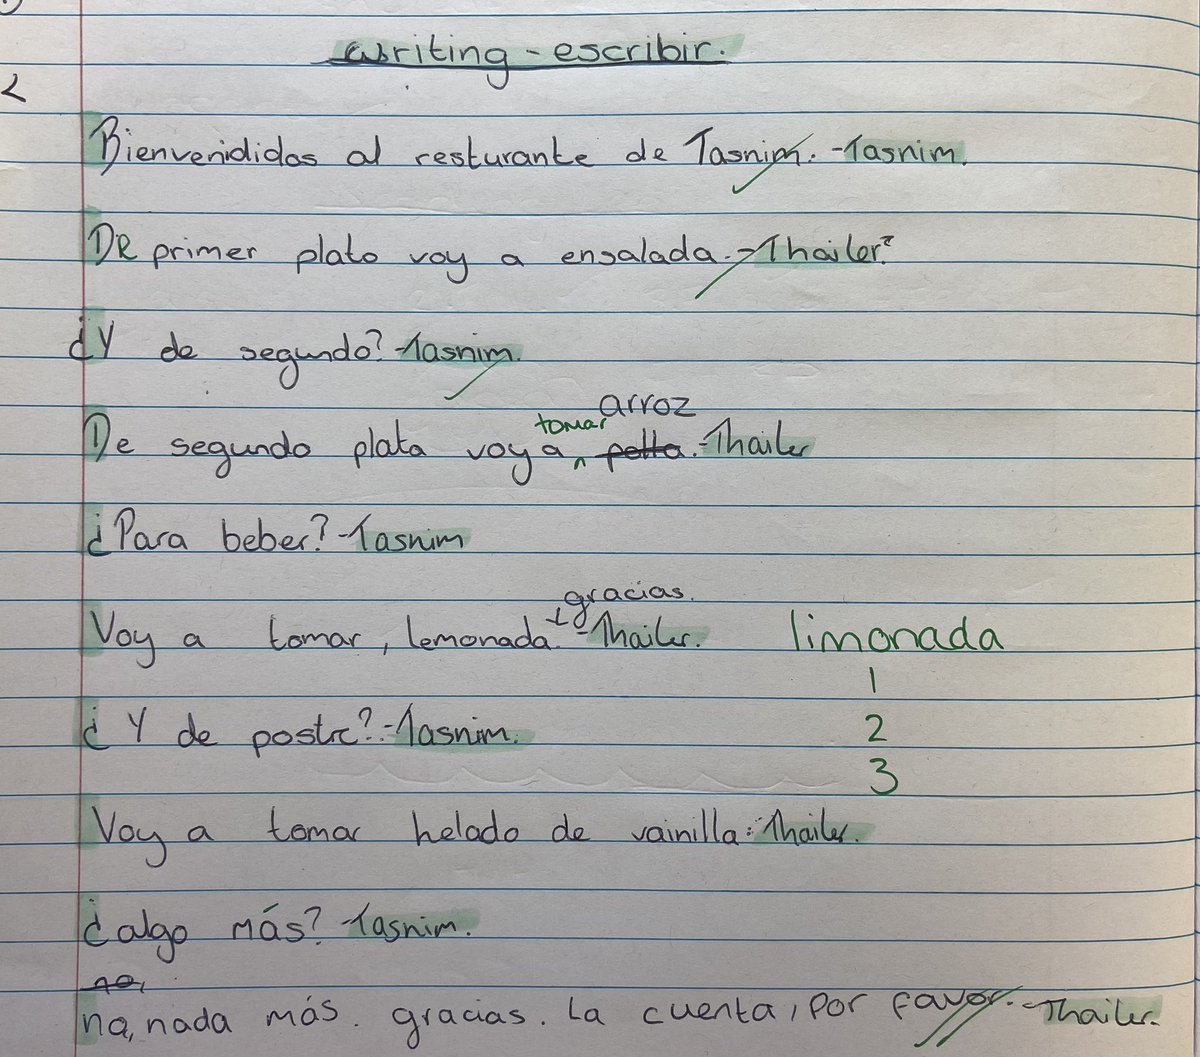 writing - escribir.
Bienvenididos al resturante de Tasnim. -Tasnim.
De primer plato voy a ensalada. -Thailer.
¿Y de segundo? -Tasnim.
tomar arroz
De segundo plata voy a petta. -Thailer
¿Para beber? -Tasnim
gracias.
Voy a tomar, lemonada. -Thailer. limonada
1
¿Y de postre? -Tasnim. 2
3
Voy a tomar helado de vainilla. -Thailer.
¿algo más? -Tasnim.
no,
no, nada más. gracias. La cuenta, por favor. -Thailer.